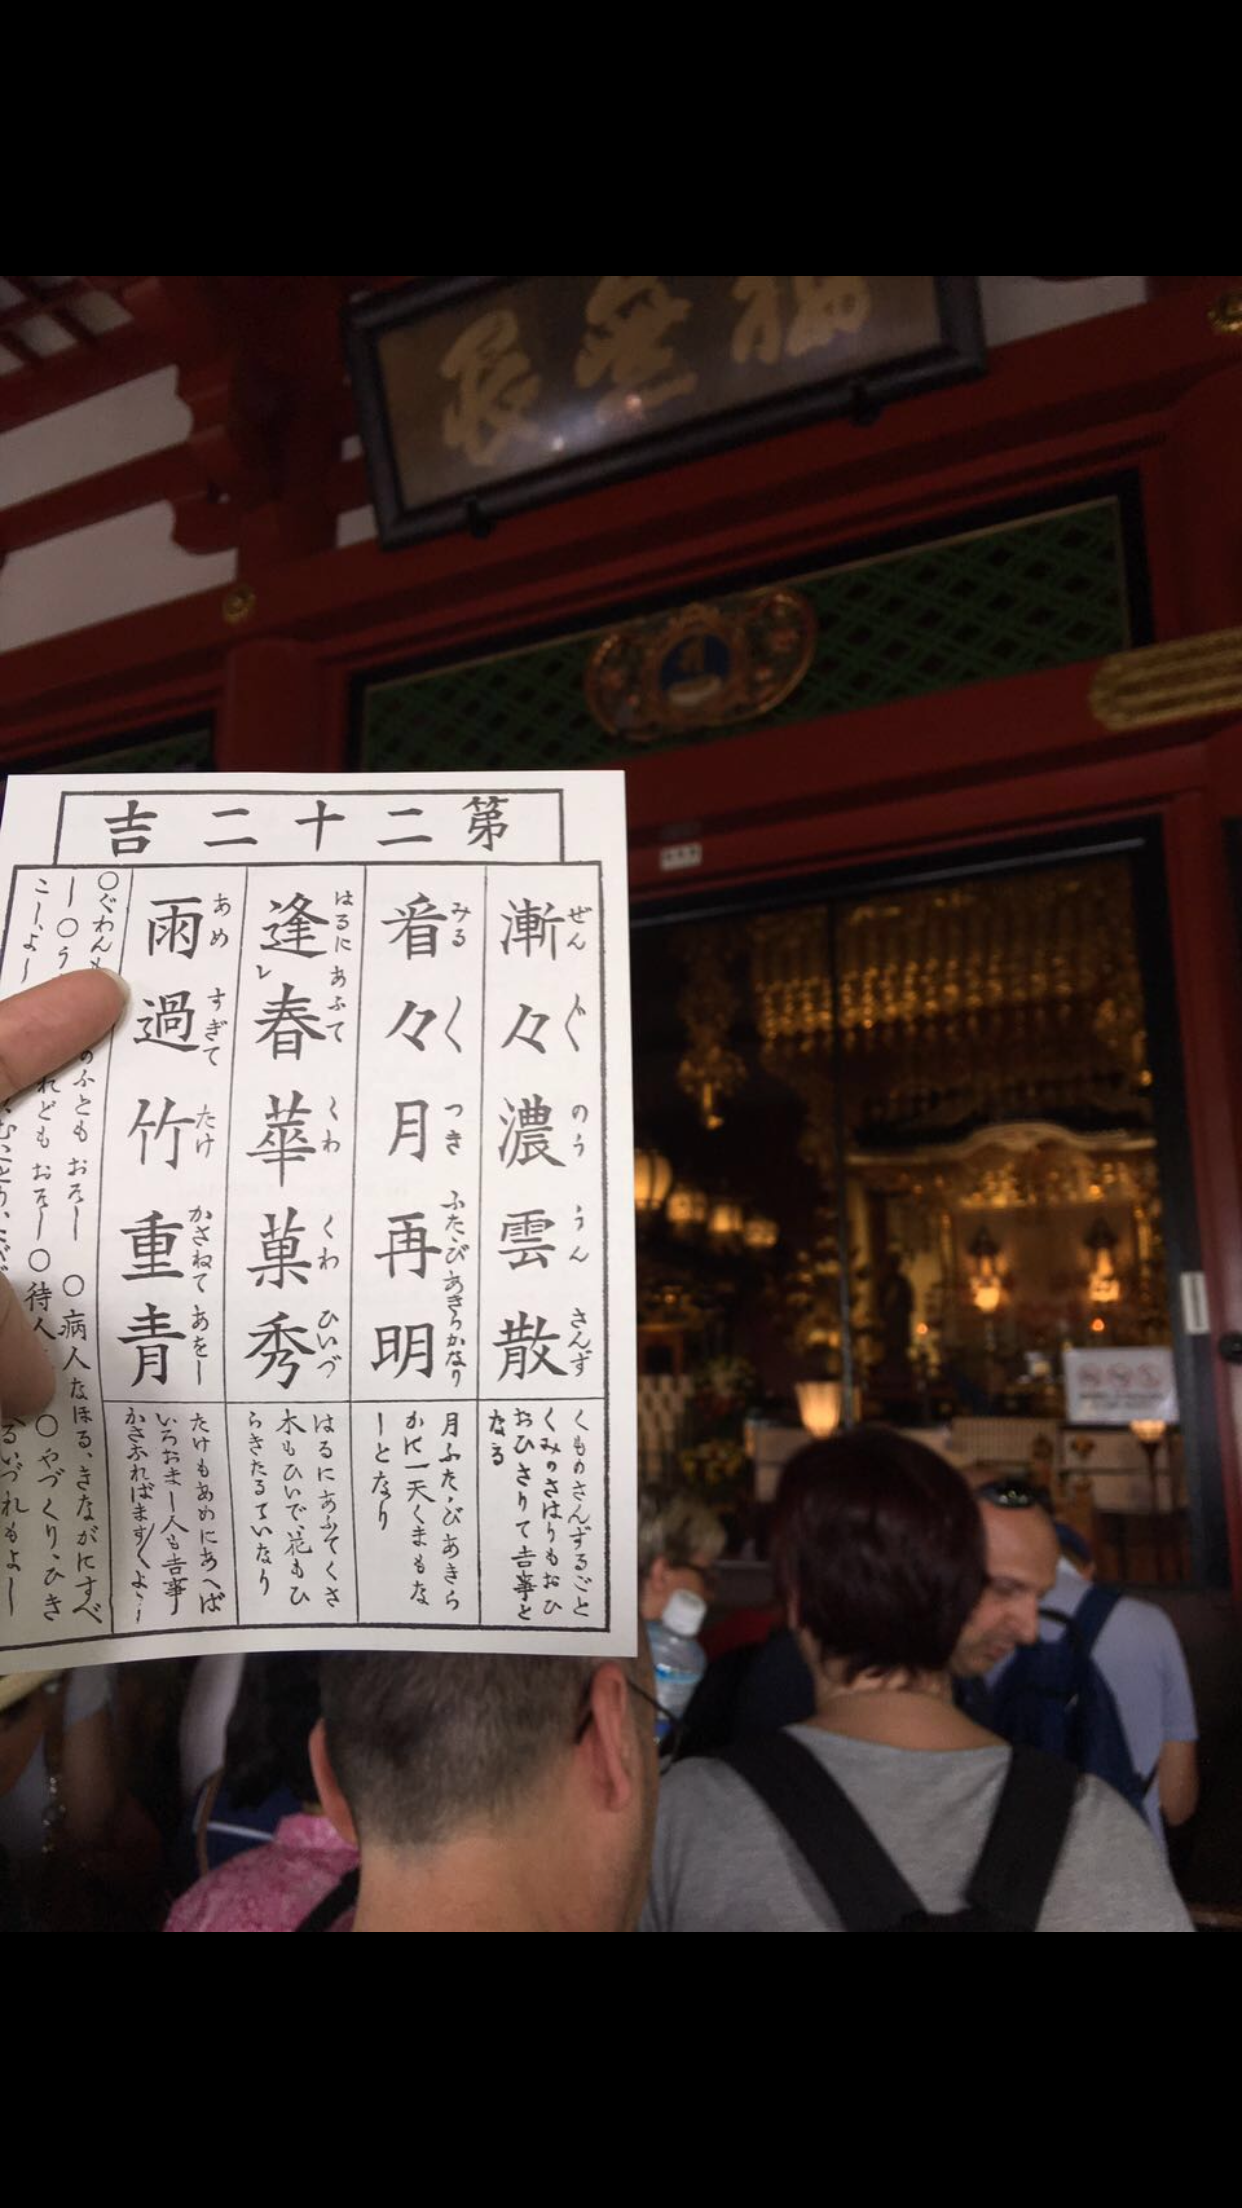 第二十二吉
漸々濃雲散
ぜんぐのううんさんず
くものさんずるごと
くみのさはりもおひ
おひさりて吉事と
なる
看々月再明
みるくつきふたゝびあきらかなり
月ふたゝびあきら
かに一天くまもな
しとなり
逢春華菓秀
はるにあふてくわくわひいづ
レ
はるにあふてくさ
木もひいで、花もひ
らきたるていなり
雨過竹重青
あめすぎてたけかさねてあをし
たけもあめにあへば
いろおまし人も吉事
かさなればます〳〵よし
○ぐわんも
のふとも おそし ○病人なほる、きながにすべ
し ○う
れども おそし ○待人
○やづくり、ひき
こし、よし
るいづれもよし